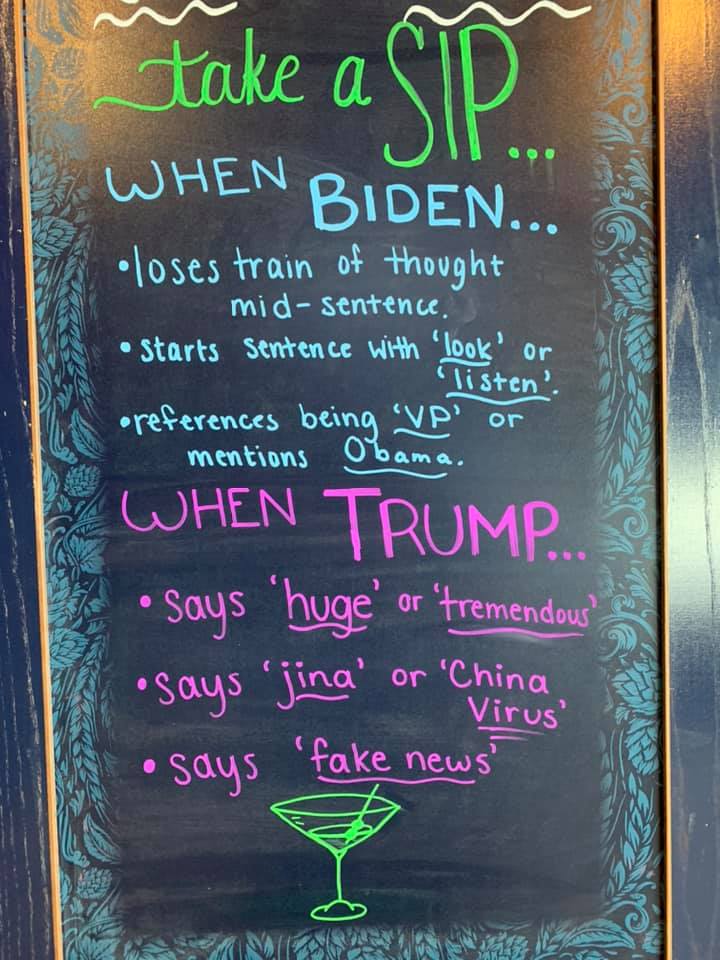 take a SIP...
WHEN BIDEN...
•loses train of thought
mid-sentence.
•starts sentence with 'look' or
'listen'.
•references being 'VP' or
mentions Obama.
WHEN TRUMP...
•says 'huge' or 'tremendous'
•says 'jina' or 'China
Virus'
•says 'fake news'